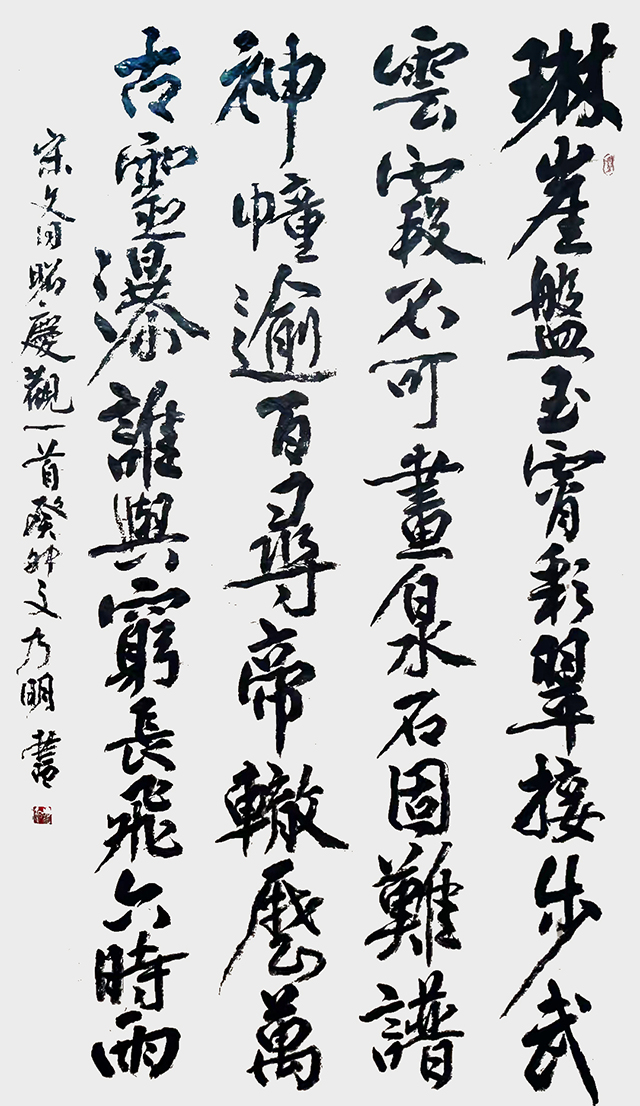 琳崖盤玉霄彩翠接步武
雲霞不可畫泉石固難譜
神幢逾百尋帝轍歷萬
古靈瀑誰與窮長飛六時雨
宋文同昭慶觀一首癸卯文乃明書